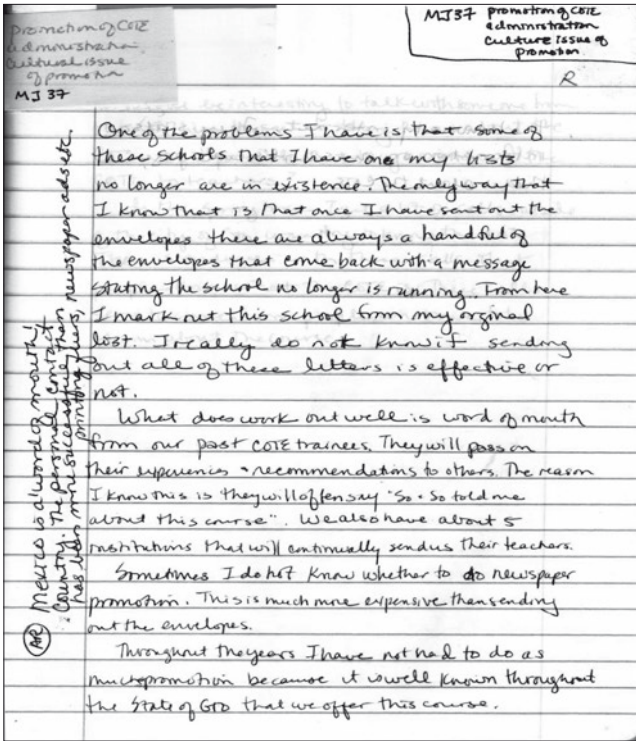 Promotion of COTE
administration
cultural issue
of promotion
MJ 37
MJ37 promotion of COTE
administration
culture issue of
promotion
R
One of the problems I have is that some of
these schools that I have one my lists
no longer are in existence. The only way that
I know that is that once I have sent out the
envelopes there are always a handful of
the envelopes that come back with a message
stating the school no longer is running. From here
I mark out this school from my orginal
lost. I really do not know if sending
out all of these letters is effective or
not.
What does work out well is word of mouth
from our past COTE trainees. They will pass on
their experiences + recommendations to others. The reason
I know this is they will often say "So + So told me
about this course". We also have about 5
institutions that will continually send us their teachers.
Sometimes I do not know whether to do newspaper
promotion. This is much more expensive than sending
out the envelopes.
Throughout the years I have not had to do as
much promotion because it is well known throughout
the State of GTO that we offer this course.
AR Mexico is a word of mouth!
Country. The personal contact
has been more successful than
printing fliers, newspaper ads etc.